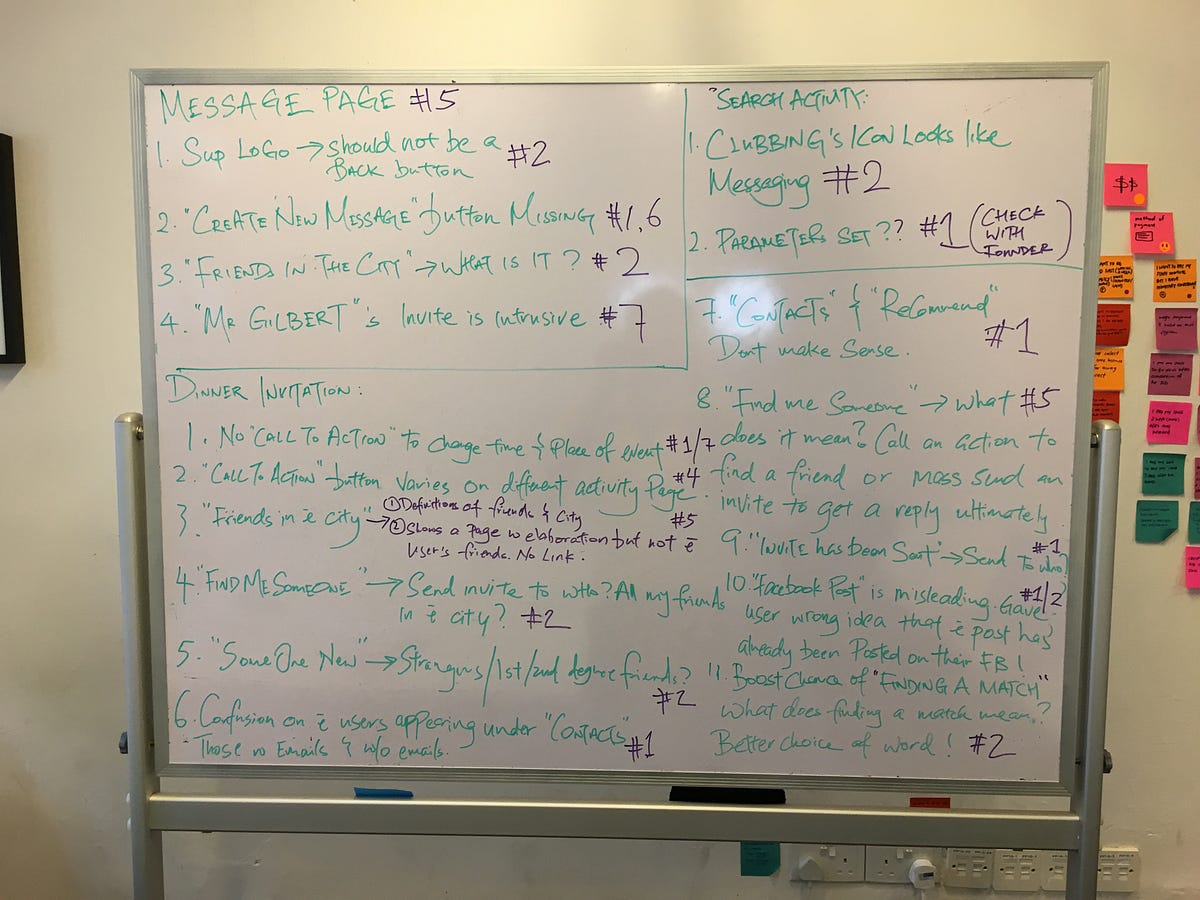 MESSAGE PAGE #5
1. Sup LOGO → should not be a #2
BACK button
2. "CREATE NEW MESSAGE" button MISSING #1,6
3. "FRIENDS IN THE CITY" → WHAT IS IT? #2
4. "MR GILBERT"'s Invite is intrusive #7
"SEARCH ACTIVITY:
1. CLUBBING'S ICON LOOKS like
Messaging #2
2. PARAMETERS SET?? #1 (CHECK
WITH
FOUNDER)
DINNER INVITATION:
1. NO "CALL TO ACTION" TO change time & Place of event #1/7
2. "CALL TO ACTION" button varies on different activity Page. #4
3. "Friends in ē city" → ① Definitions of friends & City
② Shows a page w elaboration but not ē #5
User's friends. No Link.
4. "FIND ME SOMEONE" → Send invite to who? All my friends
in ē city? #2
5. "SomeOne New" → Strangers/1st/2nd degree friends?
#2
6. Confusion on ē users appearing under "CONTACTS"
Those w Emails & w/o emails. #1
7. "CONTACTS" & "Recommend"
Dont make Sense. #1
8. "Find me Someone" → what #5
does it mean? Call an action to
find a friend or mass send an
invite to get a reply ultimately
9. "INVITE has been Sent" → Send to who? #1
10. "Facebook Post" is misleading. Gave #1/2
user wrong idea that ē post has
already been Posted on their FB!
11. Boost Chance of "FINDING A MATCH"
What does finding a match mean?
Better choice of word! #2
$$
method of
payment